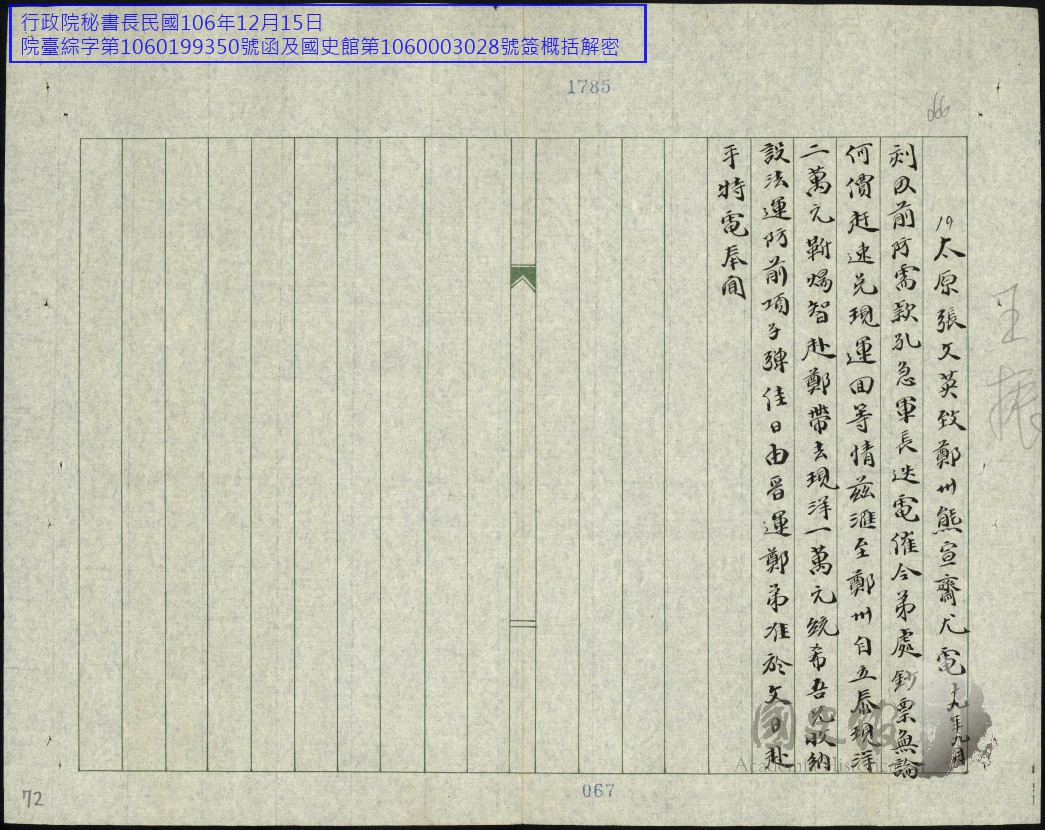 行政院秘書長民國106年12月15日
院臺綜字第1060199350號函及國史館第1060003028號簽概括解密
1785
66
19太原張文英致鄭州熊宣齋尤電十九年九月
刻以前防需款孔急軍長迭電催令弟處鈔票無論
何價赶速兌現運回等情茲滙至鄭州自立泰現洋
二萬元靳煬智赴鄭帶去現洋一萬元統希吾兄收納
設法運防前項子彈佳日由晋運鄭弟准於文日赴
平特電奉聞
王振
國史館
Academia Historica
067
72